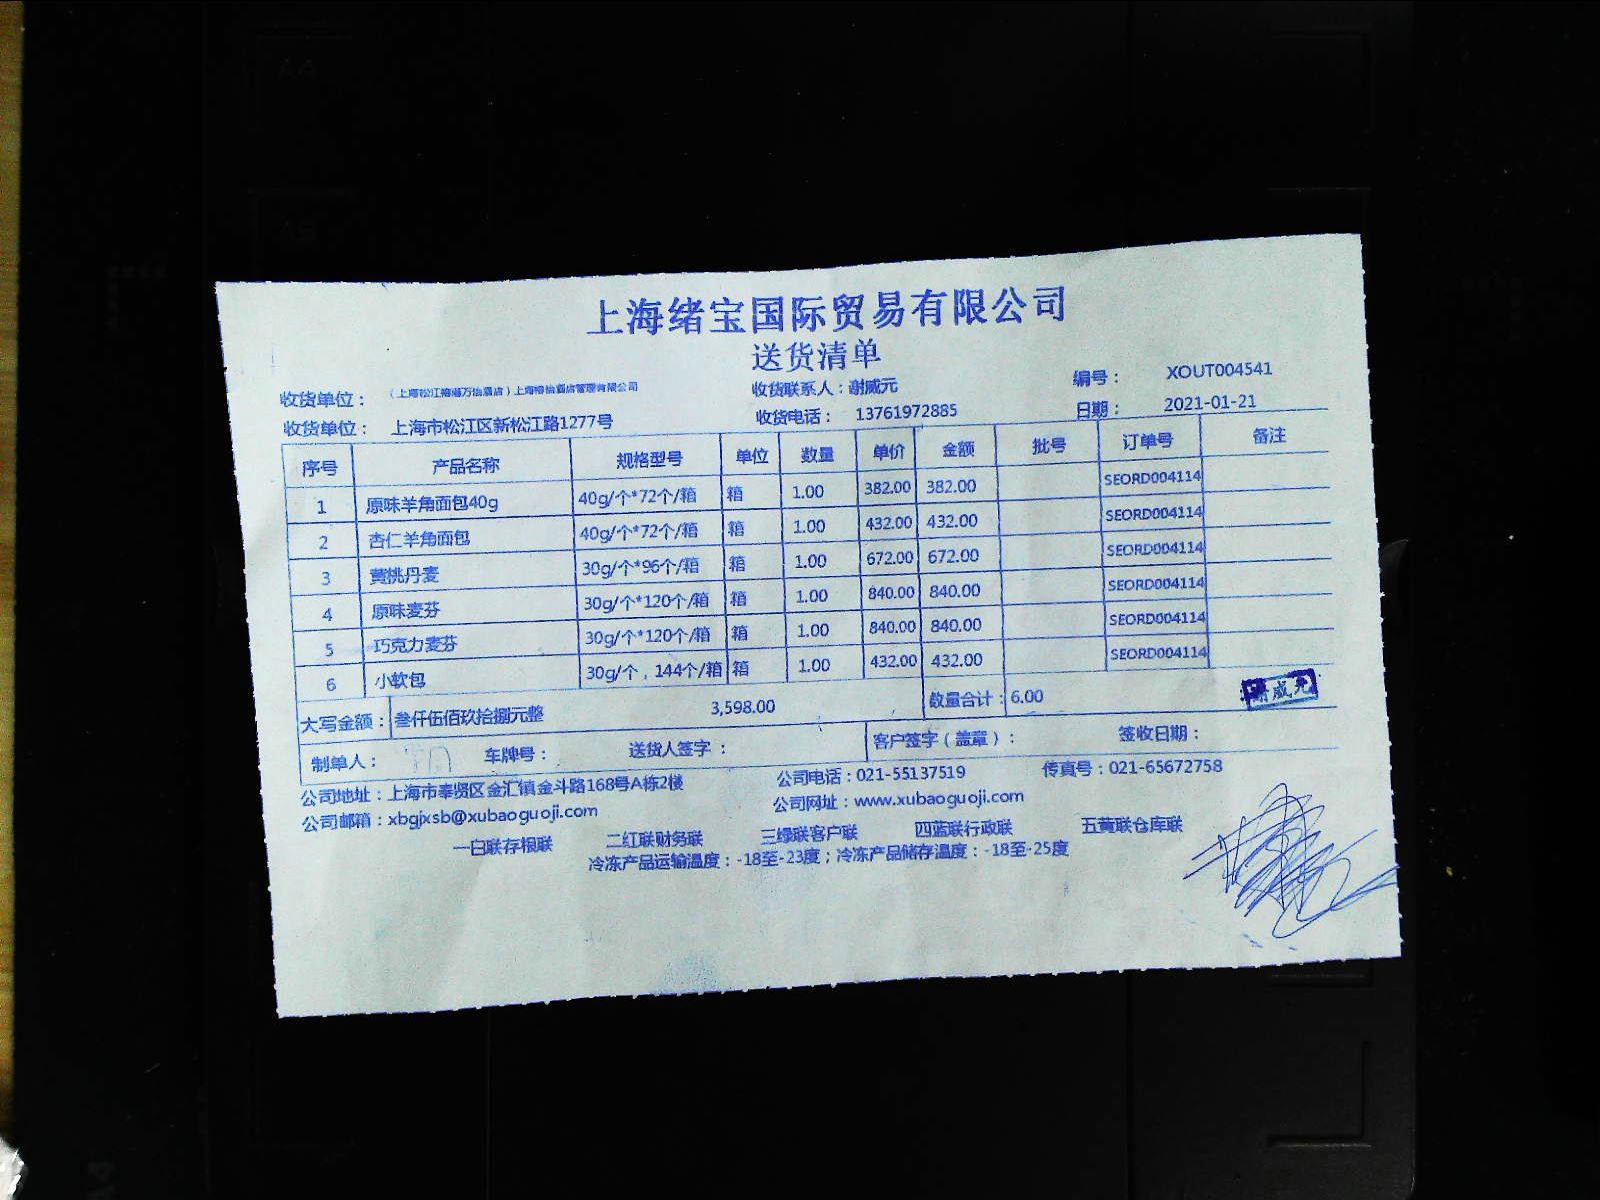 上海绪宝国际贸易有限公司
送货清单
收货单位：（上海松江 万怡酒店）上海 怡酒店管理有限公司 收货联系人：谢威元 编号： XOUT004541
收货单位： 上海市松江区新松江路1277号 收货电话： 13761972885 日期： 2021-01-21
序号 产品名称 规格型号 单位 数量 单价 金额 批号 订单号 备注
1 原味羊角面包40g 40g/个*72个/箱 箱 1.00 382.00 382.00 SEORD004114
2 杏仁羊角面包 40g/个*72个/箱 箱 1.00 432.00 432.00 SEORD004114
3 黄桃丹麦 30g/个*96个/箱 箱 1.00 672.00 672.00 SEORD004114
4 原味麦芬 30g/个*120个/箱 箱 1.00 840.00 840.00 SEORD004114
5 巧克力麦芬 30g/个*120个/箱 箱 1.00 840.00 840.00 SEORD004114
6 小软包 30g/个，144个/箱 箱 1.00 432.00 432.00 SEORD004114
大写金额： 叁仟伍佰玖拾捌元整 3,598.00 数量合计： 6.00 谢威元
制单人： 车牌号： 送货人签字： 客户签字（盖章）： 签收日期：
公司地址：上海市奉贤区金汇镇金斗路168号A栋2楼 公司电话：021-55137519 传真号：021-65672758
公司邮箱：xbgjxsb@xubaoguoji.com 公司网址：www.xubaoguoji.com
一白联存根联 二红联财务联 三绿联客户联 四蓝联行政联 五黄联仓库联
冷冻产品运输温度：-18至-23度；冷冻产品储存温度：-18至-25度